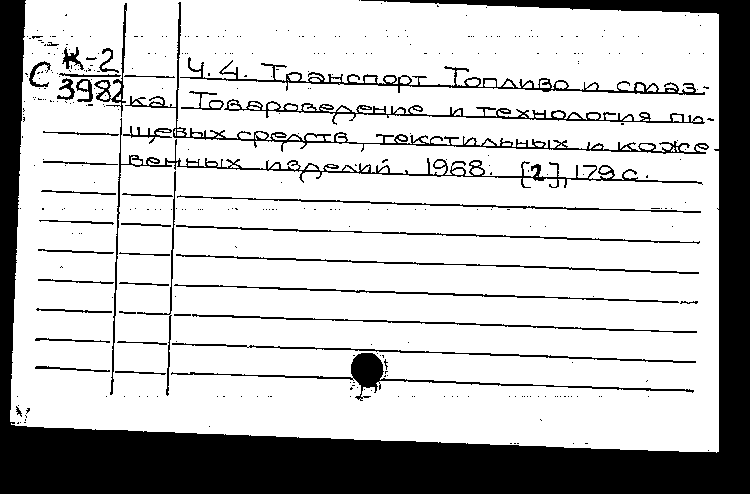 С К-2
3982
Ч.4. Транспорт Топливо и смаз-
ка. Товароведение и технология пи-
щевых средств, текстильных и коже-
венных изделий. 1968. [2], 179 с.